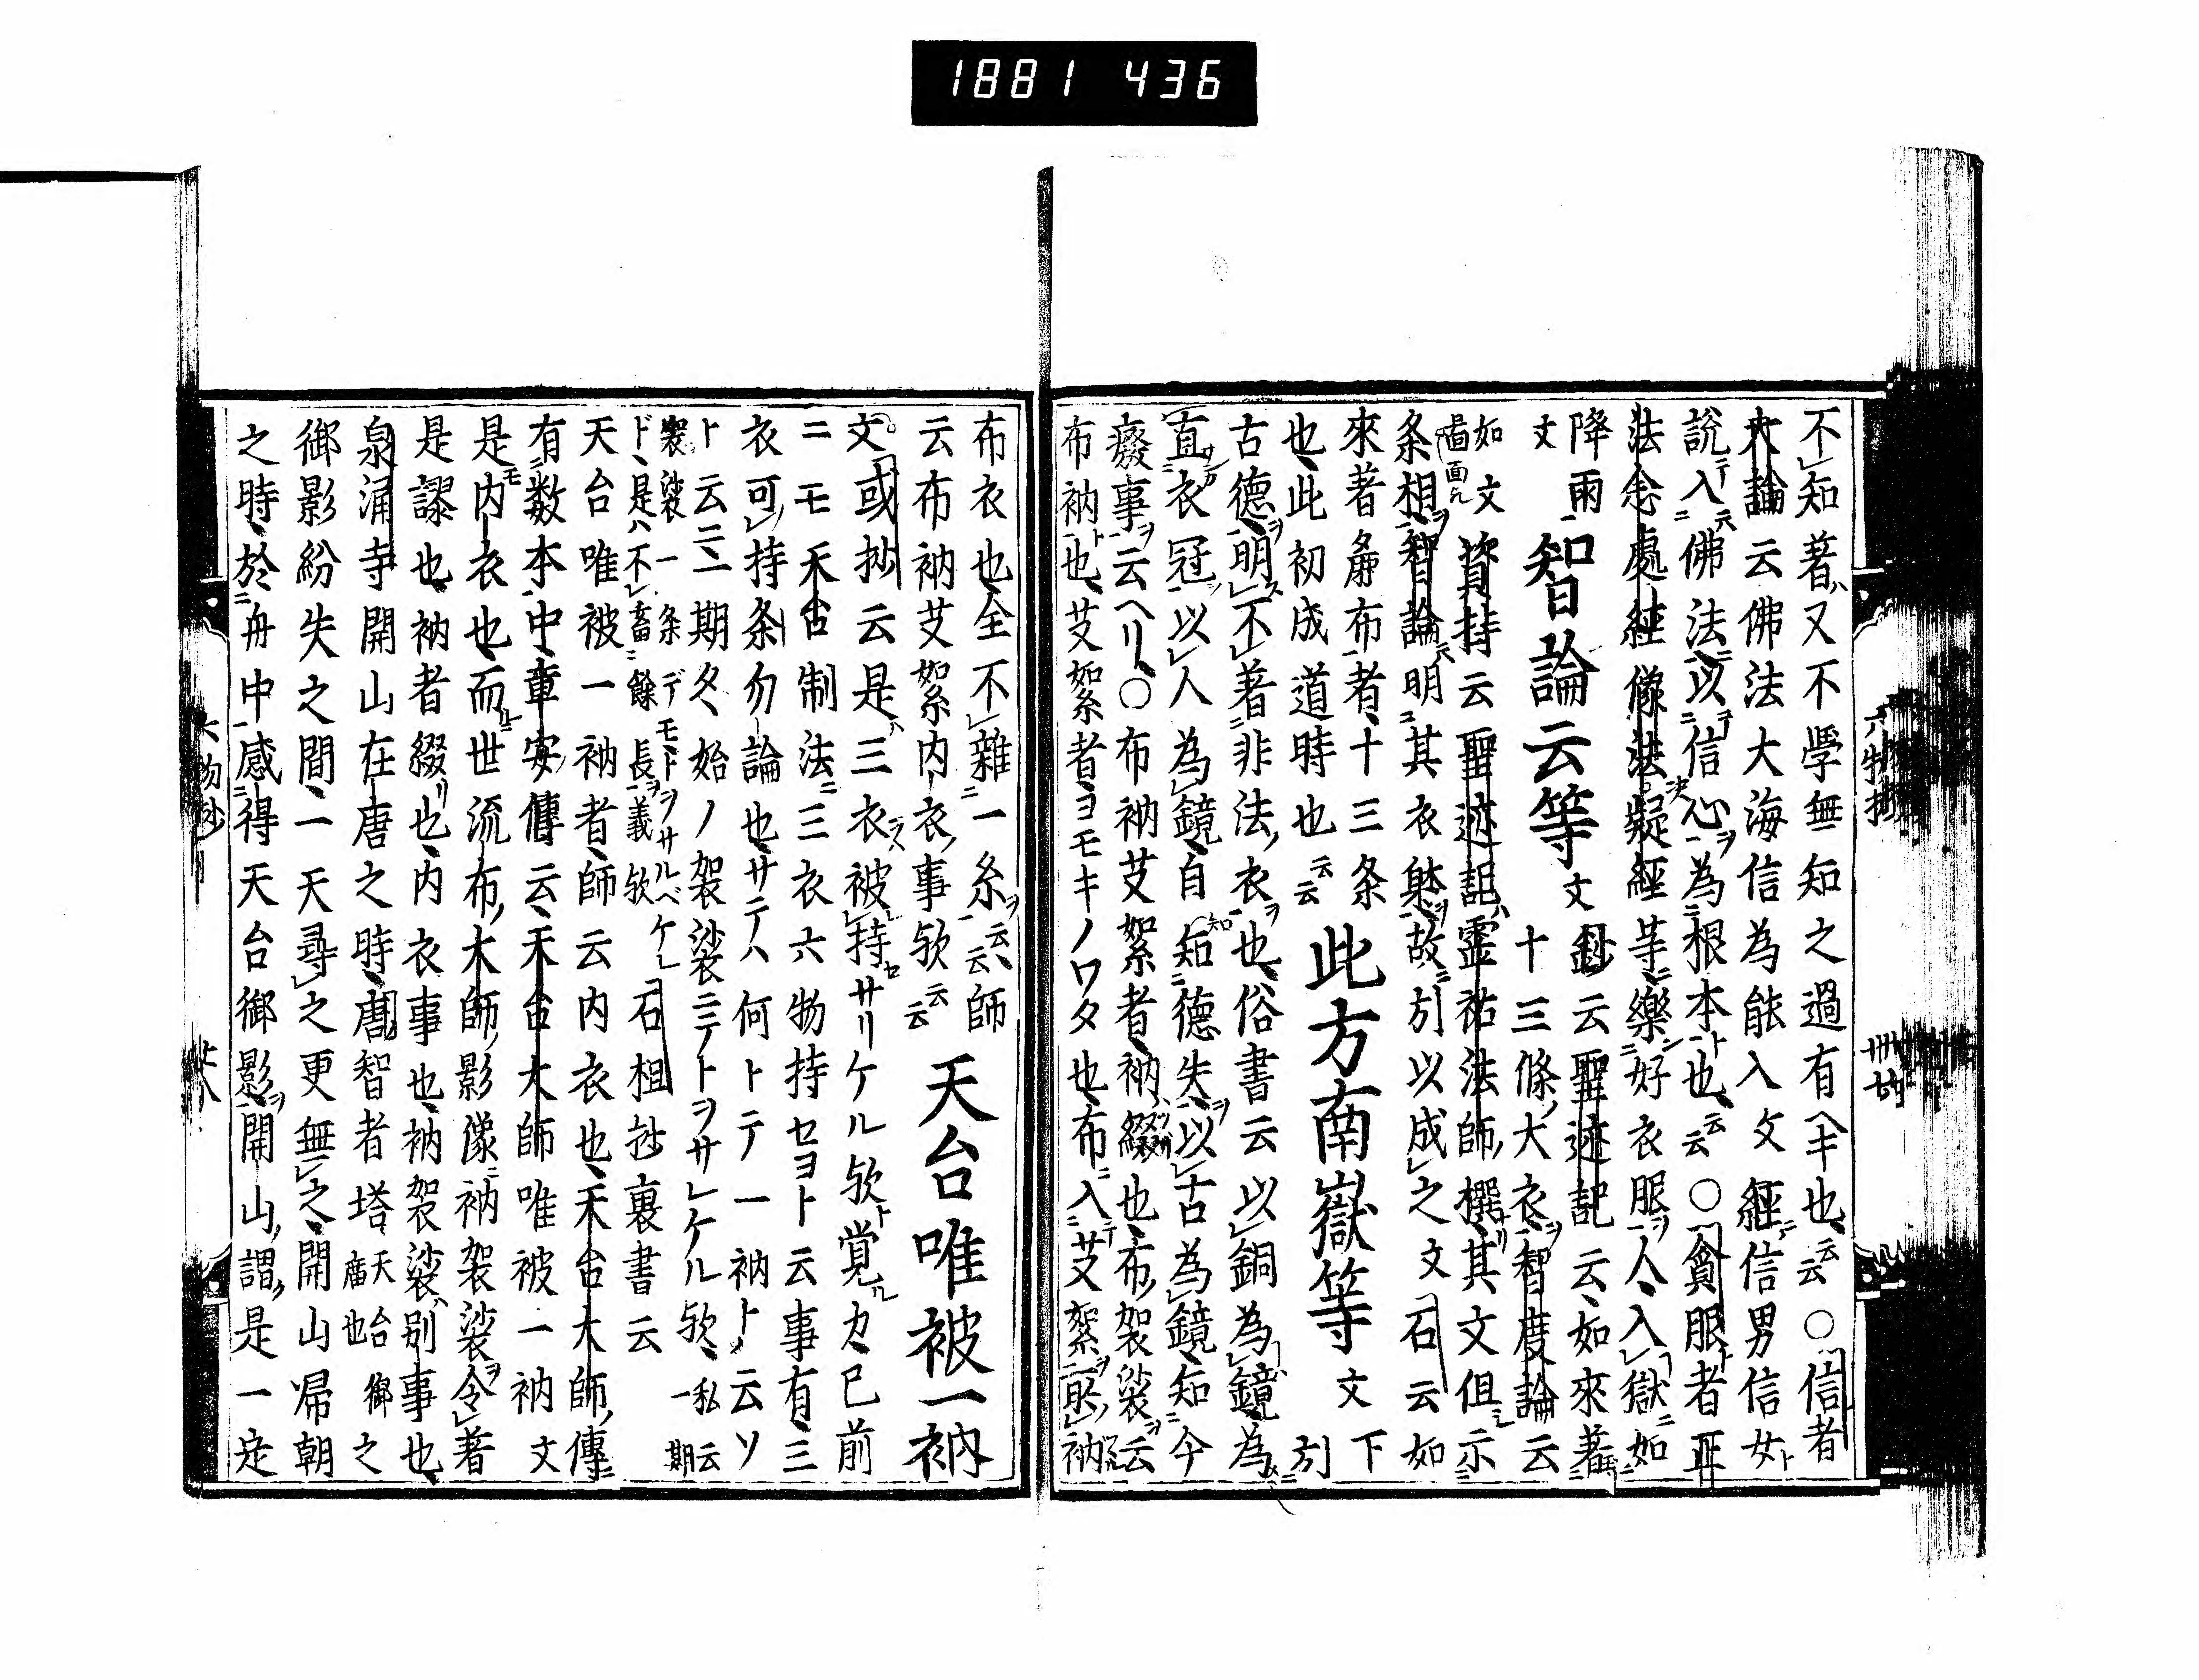 1881 436
不知著又不學無知之過有ヘキ也云云〇信者
大論云佛法大海信為能入文經信男信女
說入佛法以信心為根本也云云〇貪服者正
法念處經像法決疑經等樂好衣服人入獄如
降雨文智論云等文鈔云聖迹記云如來著
十三條大衣智度論云
如文資持云聖迹記靈祐法師撰其文但示
条相智論明其衣財故引以成之文石云如
來著麁布者十三条此方南嶽等文下
也此初成道時也云云引
古德明不著非法衣也俗書云以銅為鏡為
直衣冠以人為鏡自知德失以古為鏡知今
癈事云ヘリ〇布衲艾絮者衲綴也布袈裟云
布衲也艾絮者ヨモキノワタ也布入艾絮財衲
布衣也全不雜一糸云云師
云布衲艾絮内衣事欤云云天台唯被一衲
文或抄云是三衣被持サリケル欤覚カ已前
ニモ天台制法三衣六物持セヨト云事有三
衣可持条勿論也サテハ何トテ一衲ト云ソ
ト云二一期久始ノ袈裟ニテトヲサレケル欤私云一期
袈裟一条デモトヲサルベケレド是ハ不畜餘長義欤石祖抄裏書云
天台唯被一衲者師云内衣也天台大師傳
有数本中章安傳云天台大師唯被一衲文
是内衣也而世流布大師影像衲袈裟令著
是謬也衲者綴也内衣事也衲袈裟別事也
泉涌寺開山在唐之時唐智者塔天台廟也御之
御影紛失之間一天尋之更無之開山帰朝
之時於舟中感得天台御影開山謂是一定
六物抄